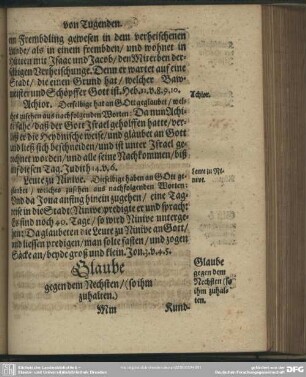 von Tugenden.
ein Frembdling gewesen in dem verheischenen
Lande/ als in einem frembden/ und wohnet in
Hütten mit Isaac und Jacob/ den Miterben der-
selbigen Verheischunge. Denn er wartet auf eine
Stadt/ die einen Grund hat/ welcher Baw-
meister und Schöpffer Gott ist. Heb. 11. v. 8. 9. 10.
Achior. Derselbige hat an Gott geglaubet/ wel-
ches zusehen aus nachfolgenden Worten: Da nun Achi-
or sahe/ daß der Gott Israel geholffen hatte/ ver-
ließ er die Heydnische weise/ und gläubet an Gott
und ließ sich beschneiden/ und ist unter Israel ge-
rechnet worden/ und alle seine Nachkommen/ biß
auf diesen Tag. Judith 14. v. 6.
Leute zu Ninive. Dieselbige haben an Gott ge-
gläubet/ welches zusehen aus nachfolgenden Worten:
Und da Jona anfing hinein zugehen/ eine Tag-
reise in die Stadt Ninive/ predigte er und sprach:
Es sind noch 40. Tage/ so wird Ninive unterge-
hen: Da glaubeten die Leute zu Ninive an Gott/
und liessen predigen/ man solte fasten/ und zogen
Säcke an/ beyde groß und klein. Jon. 3. v. 4. 5.
Glaube
gegen dem Nechsten/ (so ihm
zuhalten.)
Mm Kund-
Achior.
Leute zu Ni-
nive.
Glaube
gegen dem
Nechsten (so
ihm zuhal-
ten.